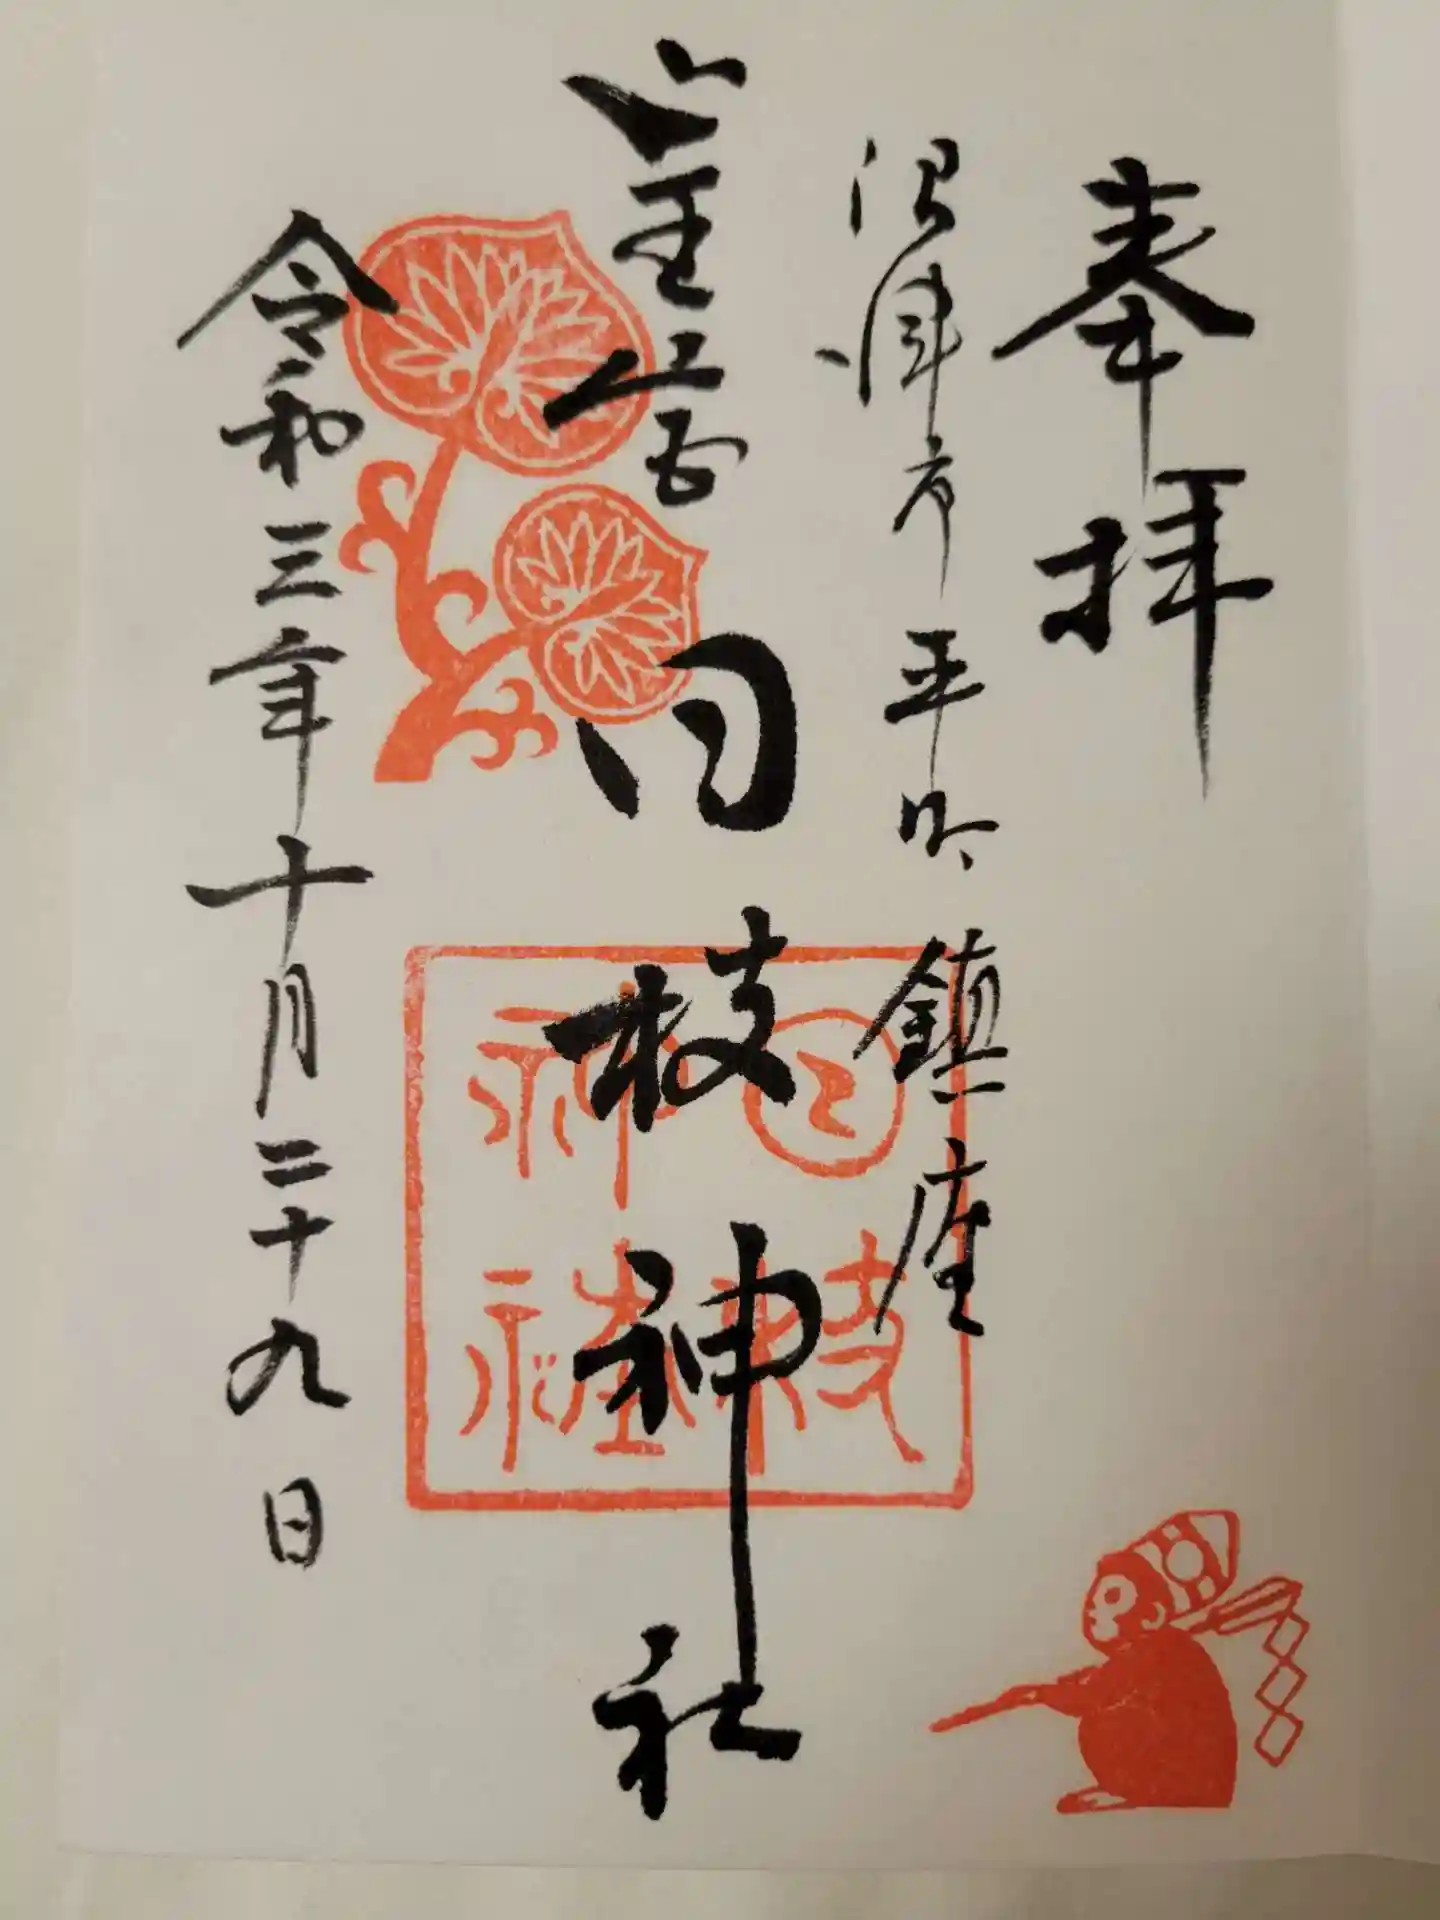 奉拝
沼津市平町鎮座
山王宮
日枝神社
令和三年十月二十九日
日枝
神社